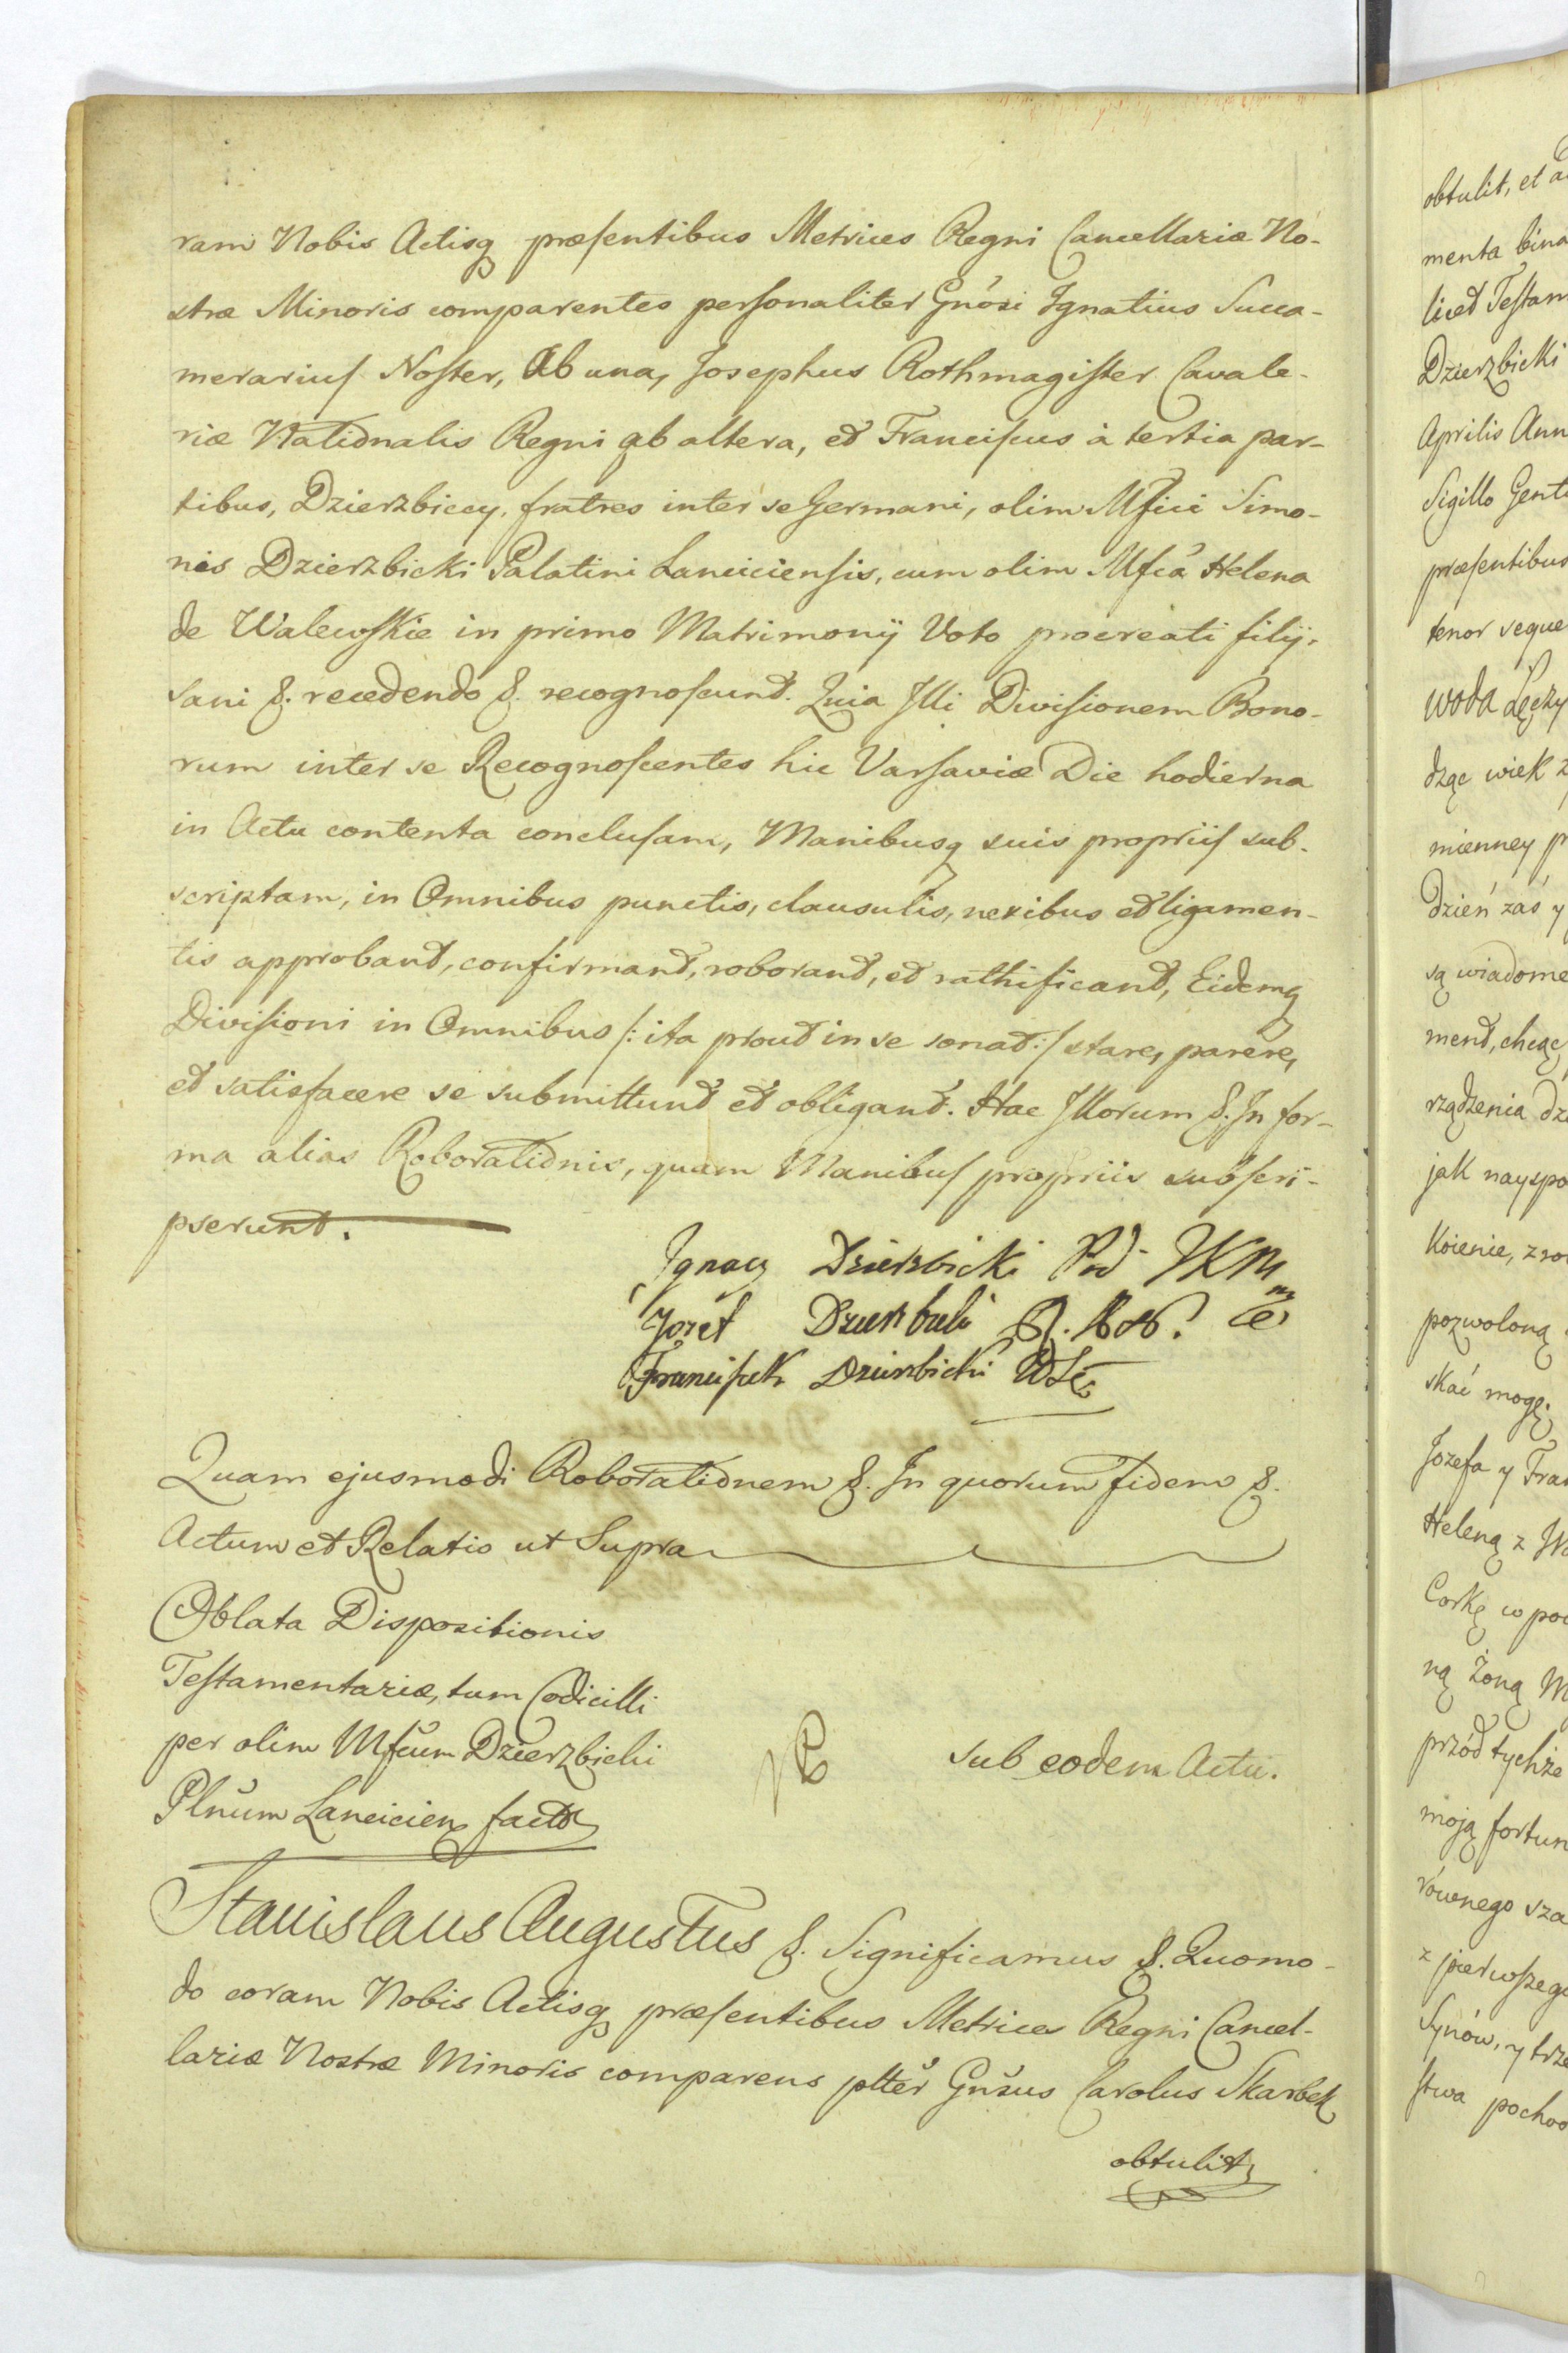 ram Nobis Actisq præsentibus Metrices Regni Cancellariæ No-
stræ Minoris comparentes personaliter Gnósi Ignatius Succa-
merarius Noster, Ab una, Josephus Rothmagister Cavale-
riæ Nationalis Regni ab altera, et Franciscus à tertia par-
tibus, Dzierzbiccy, fratres inter se Germani, olim Mfici Simo-
nis Dzierzbicki Palatini Lanciciensis, cum olim Mfcá Helena
de Walewskie in primo Matrimonÿ Voto procreati filÿ,
sani &. recedendo &. recognoscunt. Quia Illi Divisionem Bono-
rum inter se Recognoscentes hic Varsaviæ Die hodierna
in Actu contenta conclusam, Manibusq suis propriis sub-
scriptam, in Omnibus punctis, clausulis, nexibus et ligamen-
tis approbant, confirmant, roborant, et rathificant, Eidemq
Divisioni in Omnibus /: ita prout in se sonat :/ stare, parere,
et satisfacere se submittunt et obligant. Hac Illorum &. In for-
ma alias Roborationis, quam Manibus propriis subscri-
pserunt.
Ignacy Dzierzbicki Pod JKM
Jozef Dzierzbicki
Franciszek Dzierzbicki
Quam ejusmodi Roborationem &. In quorum fidem &.
Actum et Relatio ut Supra
Oblata Dispositionis
Testamentariæ, tum Codicilli
per olim Mfcum Dzierzbicki
Plnum Lancicien factæ
sub eodem Actu.
Stanislaus Augustus &. Significamus &. Quomo-
do coram Nobis Actisq præsentibus Metrices Regni Cancel-
lariæ Nostræ Minoris comparens plter Gnsus Carolus Skarbek
obtulit
obtulit, et
menta bina
licet Testam
Dzierzbicki
Aprilis Ann
Sigillo Genti
præsentibus
tenor seque
woda Łęczy
dząc wiek
mienney
dzień zaś y
są wiadome
ment, chcąc
rządzenia
jak nayspo
koienie,
pozwoloną
skać mogę.
Jozefa y Fran
Heleną z
Corkę w
ną Żoną
przód tychże
moją fortun
równego
z pierwszego
Synów, y
stwa pochod